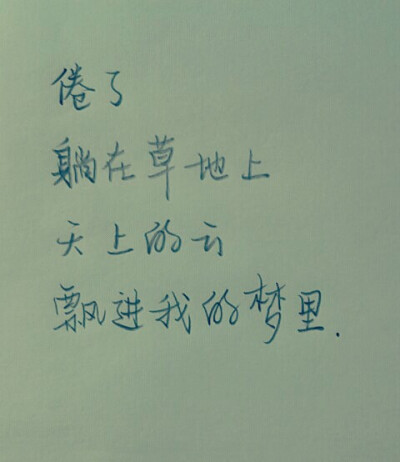 倦了
躺在草地上
天上的云
飘进我的梦里.